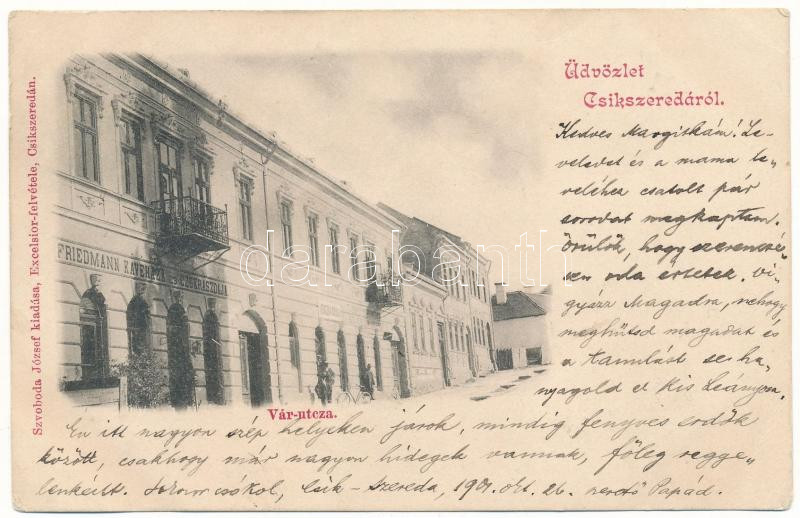 Üdvözlet
Csikszeredáról.
Szvoboda József kiadása, Excelsior-felvétele, Csikszeredán.
FRIEDMANN KÁVÉHÁZA CZUKRÁSZDÁJA
darabanth
Vár-utcza.
Kedves Margitkám! Le-
veledet és a mama le-
veléhez csatolt pár
sorodat megkaptam.
Örülök, hogy szerencsé-
sen oda értetek. Vi-
gyázz Magadra, nehogy
meghűtsd magadat és
a tanulást se ha-
nyagold el kis leányom.
Én itt nagyon szép helyeken járok, mindig fenyves erdők
között, csakhogy már nagyon hidegek vannak, főleg regge-
lenkéint. csókol, Csik-Szereda, 1901. okt. 26. szerető Papád.